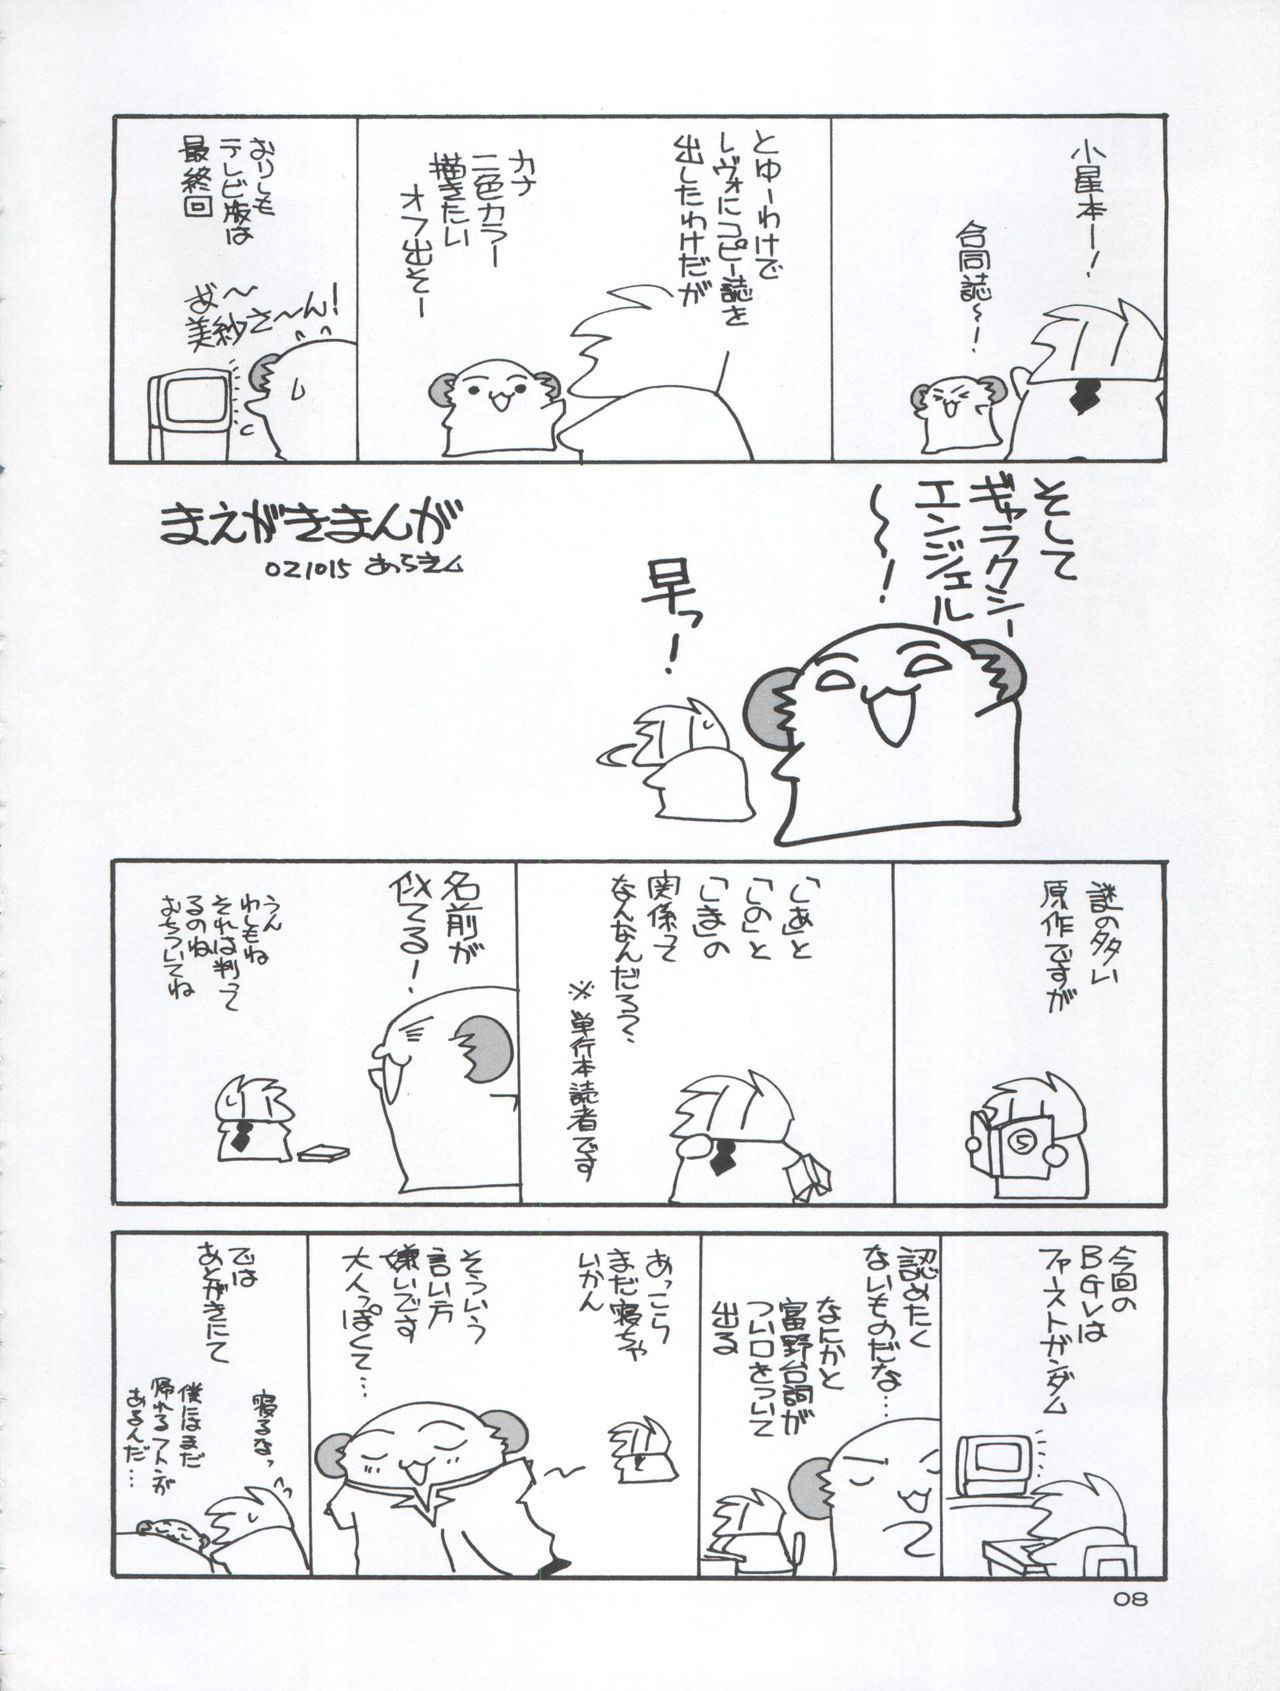 小星本ー!
合同誌〜!
とゆーわけで
レヴォにコピー誌を
出したわけだが
カナ
二色カラー
描きたい
オフ出そー
おりしも
テレビ版は
最終回
あ〜
美紗さ〜ん!
そして
ギャラクシー
エンジェル
〜〜!
早っ!
まえがきまんが
021015 あらえム
謎の多い
原作ですが
「あ」と
「の」と
「ま」の
関係って
なんなんだろう?
※単行本読者です
名前が
似てる!
うん
わしもね
それは判って
るのね
おちついてね
今回の
BGVは
ファーストガンダム
認めたく
ないものだな…
なにかと
富野台詞が
つい口をついて
出る
あっこら
まだ寝ちゃ
いかん
そういう
言い方
嫌いです
大人っぽくて…
では
あとがきにて
寝るなっ
僕にはまだ
帰れるフトンが
あるんだ…
08